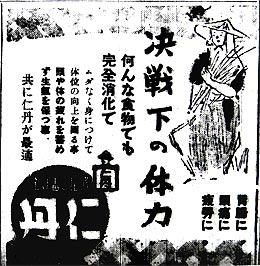 決戦下の体力
何んな食物でも
完全消化て
ムダなく身につけて
体位の向上を図る事
頭や体の疲れを蓄め
ず生氣を保つ事。
共に仁丹が最適
胃腸に
頭痛に
疲労に
仁丹